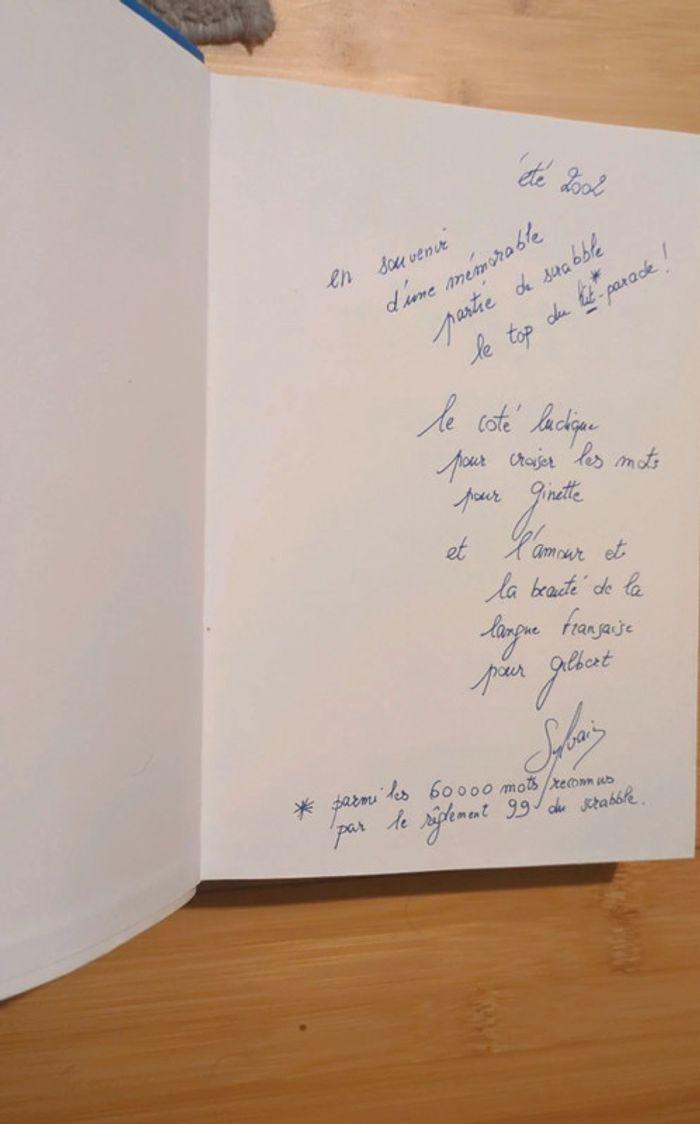 été 2002
en souvenir
d'une mémorable
partie de scrabble
le top du hit*-parade !
le coté ludique
pour croiser les mots
pour Ginette
et l'amour et
la beauté de la
langue française
pour Gilbert
Sylvain
* parmi les 60000 mots reconnus
par le règlement 99 du scrabble.